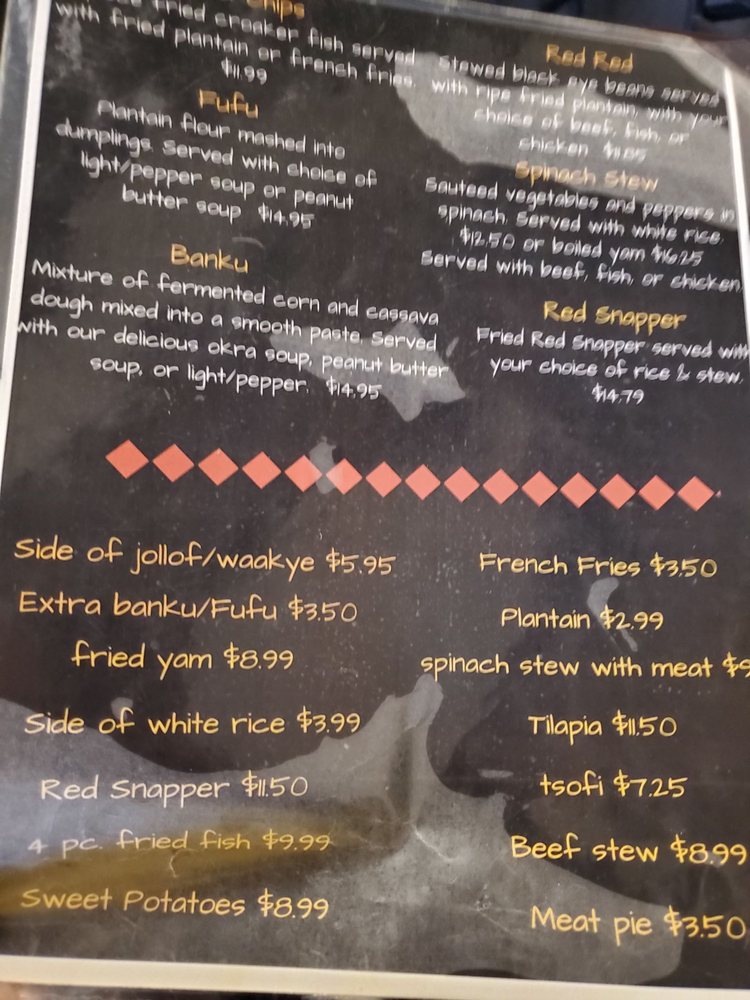 Chips
fried croaker fish served
with fried plantain or french fries.
$11.99
Fufu
Plantain flour mashed into
dumplings. Served with choice of
light/pepper soup or peanut
butter soup $14.95
Banku
Mixture of fermented corn and cassava
dough mixed into a smooth paste. Served
with our delicious okra soup, peanut butter
soup, or light/pepper. $14.95
Red Red
Stewed black eye beans served
with ripe fried plantain, with your
choice of beef, fish, or
chicken
Spinach Stew
Sauteed vegetables and peppers in
spinach. Served with white rice
$12.50 or boiled yam $16.25
Served with beef, fish, or chicken
Red Snapper
Fried Red Snapper served with
your choice of rice & stew.
$14.79
Side of jollof/waakye $5.95
Extra banku/Fufu $3.50
fried yam $8.99
Side of white rice $3.99
Red Snapper $11.50
4 pc. fried fish $9.99
Sweet Potatoes $8.99
French Fries $3.50
Plantain $2.99
spinach stew with meat
Tilapia $11.50
tsofi $7.25
Beef stew $8.99
Meat pie $3.50